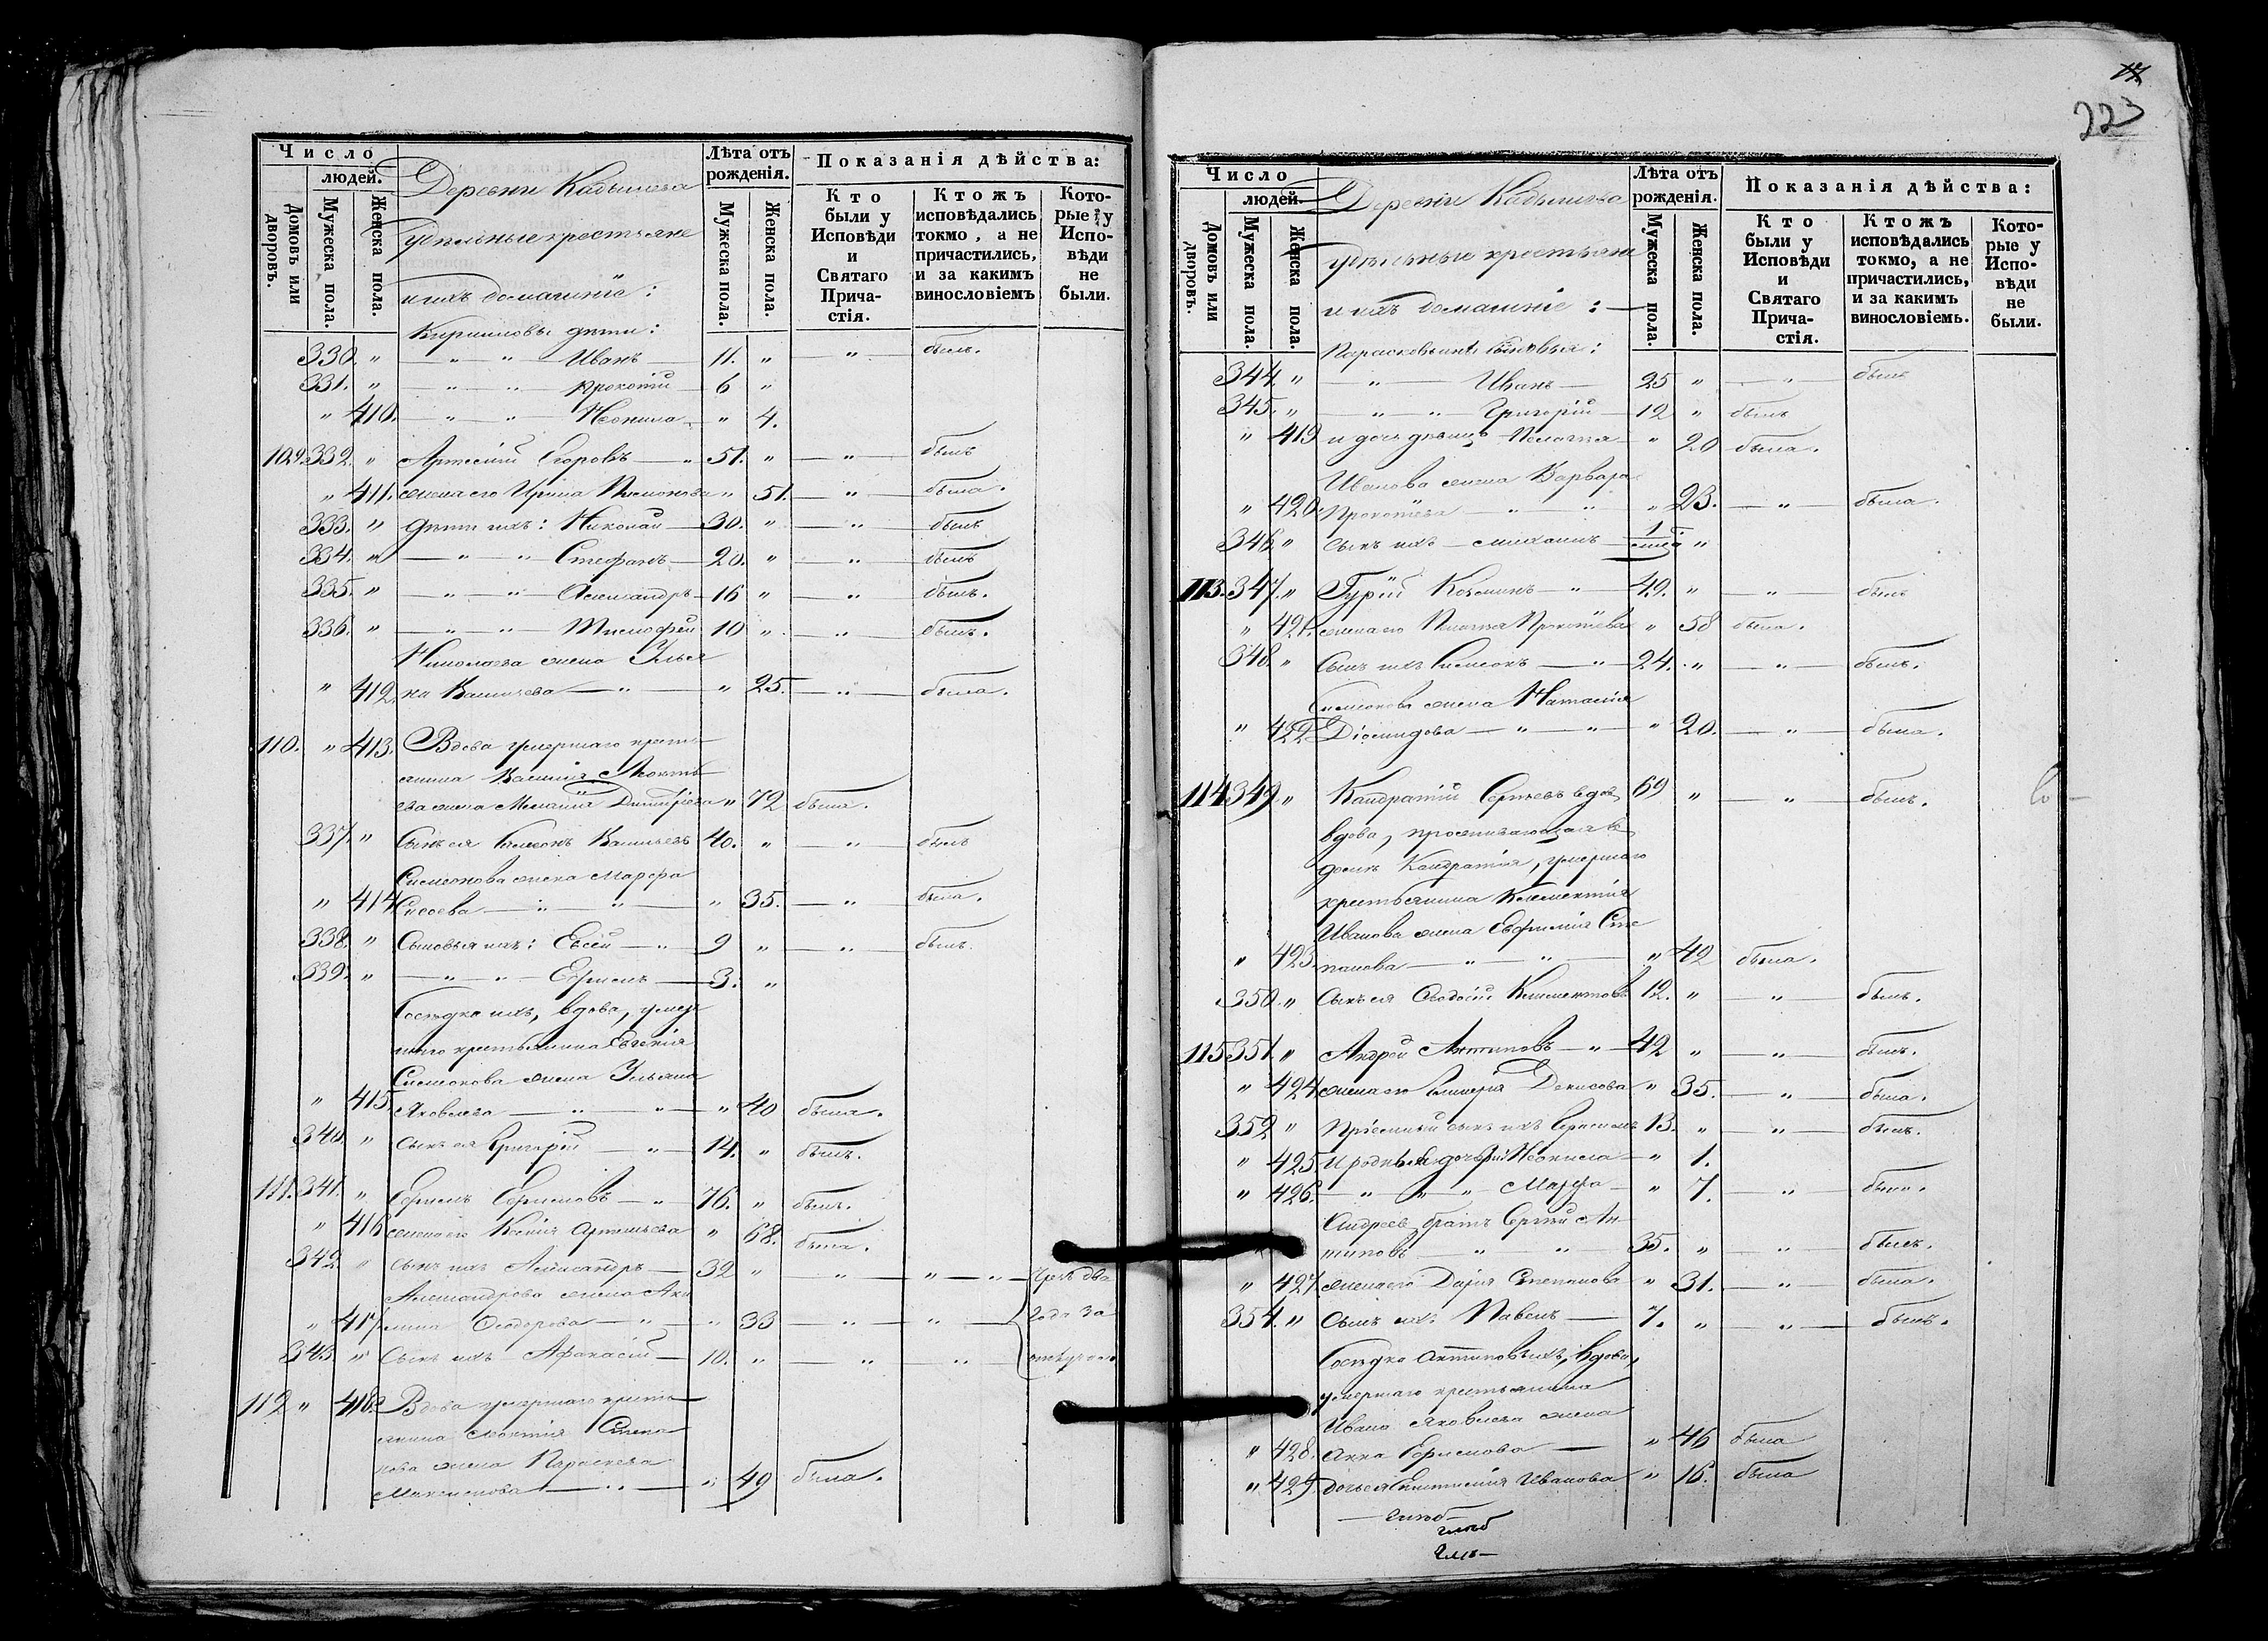 Число
людей.
Домовъ или дворовъ.
Мужеска пола.
Женска пола.
Деревни Кадышева
удѣльные крестьяне
и ихъ домашніе:
Лѣта отъ рожденія.
Мужеска пола.
Женска пола.
Показанія дѣйства:
Кто были у Исповѣди и Святаго Причастія.
Ктожъ исповѣдались токмо, а не причастились, и за какимъ винословіемъ
Которые у Исповѣди не были.
Кириловы дѣти:
330. " — " — " — Иванъ — 11. " " былъ.
331. " — " — " — Прокопій 6 "
" 410. — " — " — Неонила " 4.
109. 332. " Артемій Егоровъ — " 51. " — " — былъ
" 411. жена его Ирина " 51. — " — была.
333. " дѣти ихъ: Николай — 30. " — " — былъ
334. " — " — " — Стефанъ — 20. " — " — былъ
335. " — " — " — Александръ 16 " — " — былъ.
336. " — " — " — Тимофей 10 " — " — былъ.
Николаева жена Улья
" 412. на — " — " 25. — " — была.
110. " 413. Вдова умершаго кресть
янина
ева жена Димитріева " 72 была.
337. " Сынъ ея Симеонъ Васильевъ 40. " — " — былъ
Симеонова жена Марфа
" 414 Сисоева — " — " — " 35. — " — была.
338. " Сыновья ихъ: Евсей — " 9 " — " — былъ.
339. " — " — " — Ефимъ — 3. "
Сосѣдка ихъ, вдова, умер
шаго крестьянина Евгенія
Симеонова жена Ульяна
" 415. Яковлева — " — " — " 40 была.
340. " Сынъ ея Григорій — " — 14. " былъ.
111. 341. " Ефимъ Ефимовъ — " 76. " былъ.
" 416 жена его Ксенія Артемьева " 68. была.
342. " Сынъ ихъ Александръ — 32 " — " — " — " — Чрезъ два
Александрова жена Аку
" 417 лина Ѳеодорова — " — " 33 — " — " — года за
343. " Сынъ ихъ Афанасій — 10. " " " отлучкою
112 " 418. Вдова умершаго кресть
янина Степа
нова жена Параскева
Максимова — " — " 49 была.
14
223
Число
людей.
Домовъ или дворовъ.
Мужеска пола.
Женска пола.
Деревни Кадышева
удѣльные крестьяне
и ихъ домашніе: —
Лѣта отъ рожденія.
Мужеска пола.
Женска пола.
Показанія дѣйства:
Кто были у Исповѣди и Святаго Причастія.
Ктожъ исповѣдались токмо, а не причастились, и за какимъ винословіемъ.
Которые у Исповѣди не были.
Парасковьины сыновья:
344. " — " — Иванъ — 25 " — " — былъ
345. " — " — " — Григорій — 12 " былъ
" 419 и дочь дѣвица Пелагія — " 20 была.
Иванова жена Варвара
" 420. Прокопіева — " — " " 23. — " — была.
346. " Сынъ ихъ — Михаилъ — 1 "
113. 347. " Гурій Козминъ — " — 49. " — " — былъ
" 421. жена его Пелагія Прокопіева " 58 была.
348. " Сынъ ихъ Симеонъ — " — 24. " — " — былъ.
Симеонова жена Наталія
" 422 Діомидова — " — " — " 20. — " — была.
114 349. " Кандратій Сергѣевъ вдов. 69 " — " — былъ.
вдова, проживающая въ
домѣ Кандратія, умершаго
крестьянина Клементія
Иванова жена Евфимія Сте
" 423. панова — " — " — " 42 была.
350. " Сынъ ея Ѳеодосій Клементовъ 12. " — " — былъ.
115 351. " Андрей Антиповъ — " — 42 " — " — былъ.
" 424 жена его Гликерія Денисова " 35. — " — была.
352 " Пріемный сынъ ихъ Герасимъ 13. " — " — былъ.
" 425. и родныя дочери Неонила — " 1.
" 426. — " — " — " Марфа — " 7. — " — была.
Андреевъ братъ Сергѣй Ан
типовъ — " — " — 35. " — " — былъ.
" 427. жена его Дарія Степанова " 31. — " — была.
354. " Сынъ ихъ Павелъ — 7. " — " — былъ.
Сосѣдка Антиповыхъ, вдова,
умершаго крестьянина
Ивана Яковлева жена
" 428. Анна Ефимова — " 46 была
" 429. дочь ея Евпимія Иванова " 16. была